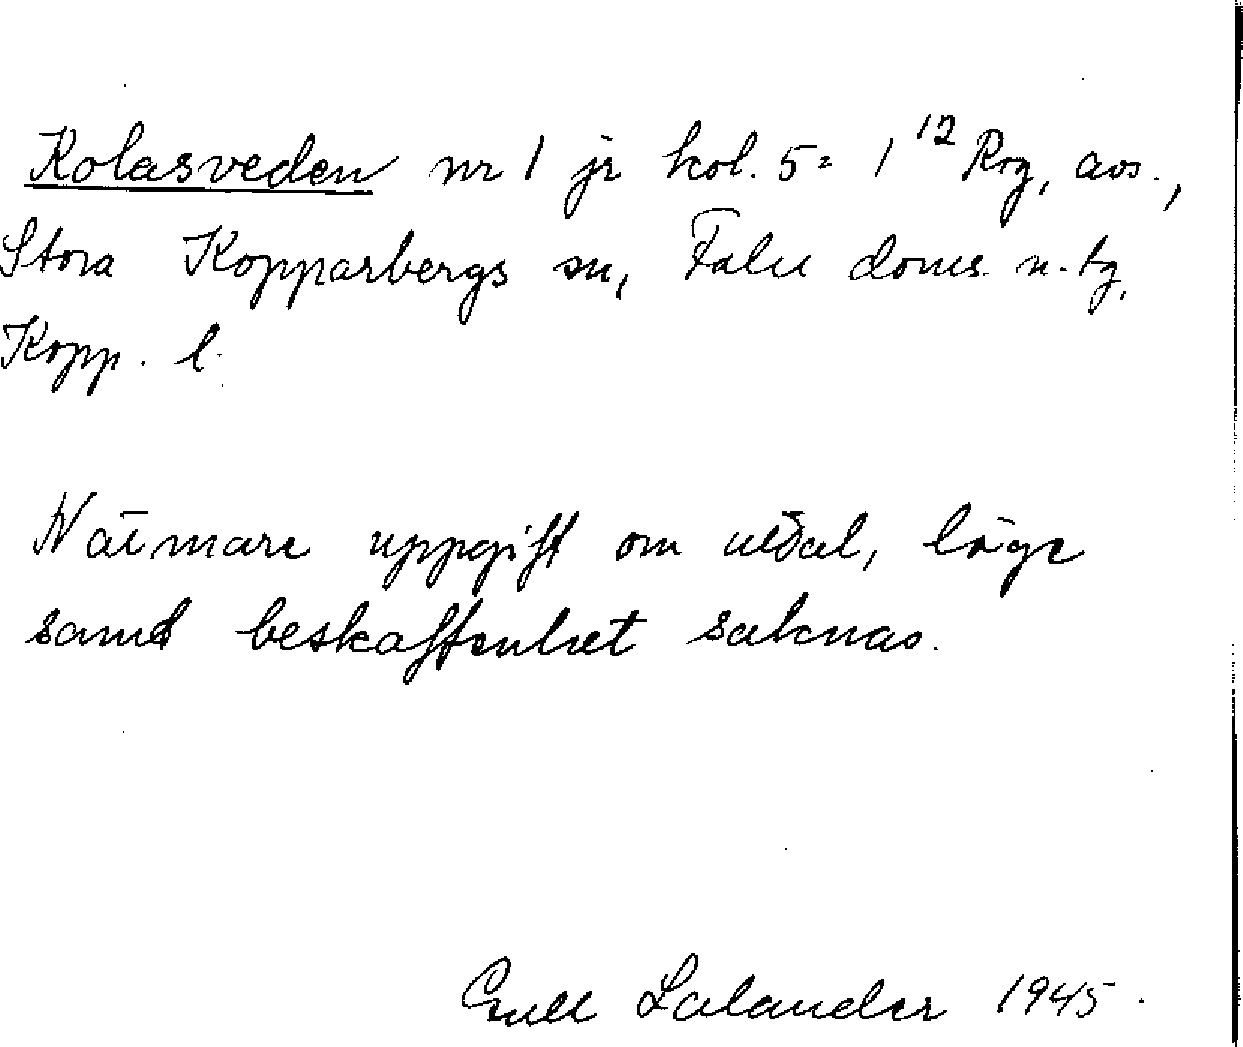 Kolasveden nr 1 jr kol. 5 = 1¹² Rrg, avs.,
Stora Kopparbergs sn, Falu doms. n. tg,
Kopp. l.
Närmare uppgift om uttal, läge
samt beskaffenhet saknas.
Gull Lalander 1945.